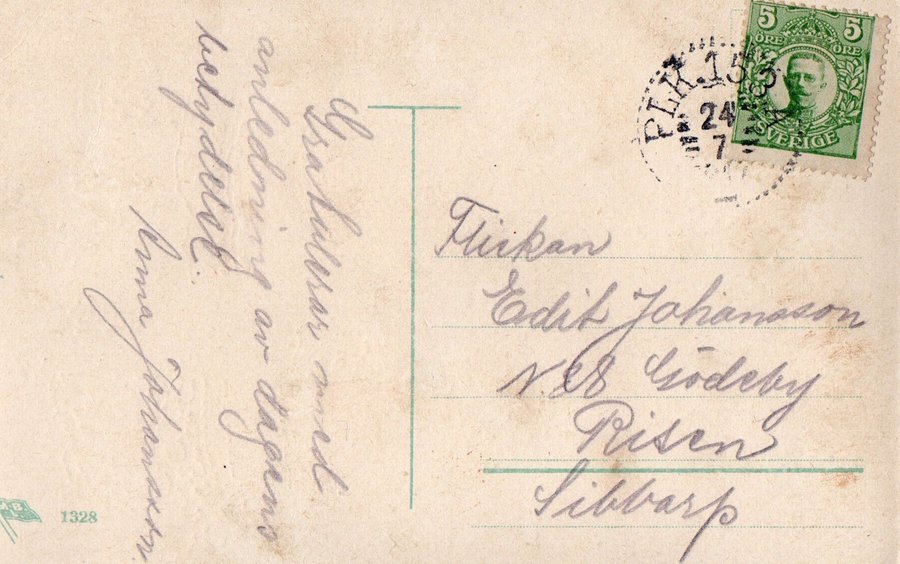 Gratulerar med
anledning av dagens
betydelse.
Anna Johansson
5 5
ÖRE ÖRE
SVERIGE
PLK.153
24
7
Flickan
Edit Johansson
Gödeby
Risen
Sibbarp
1328